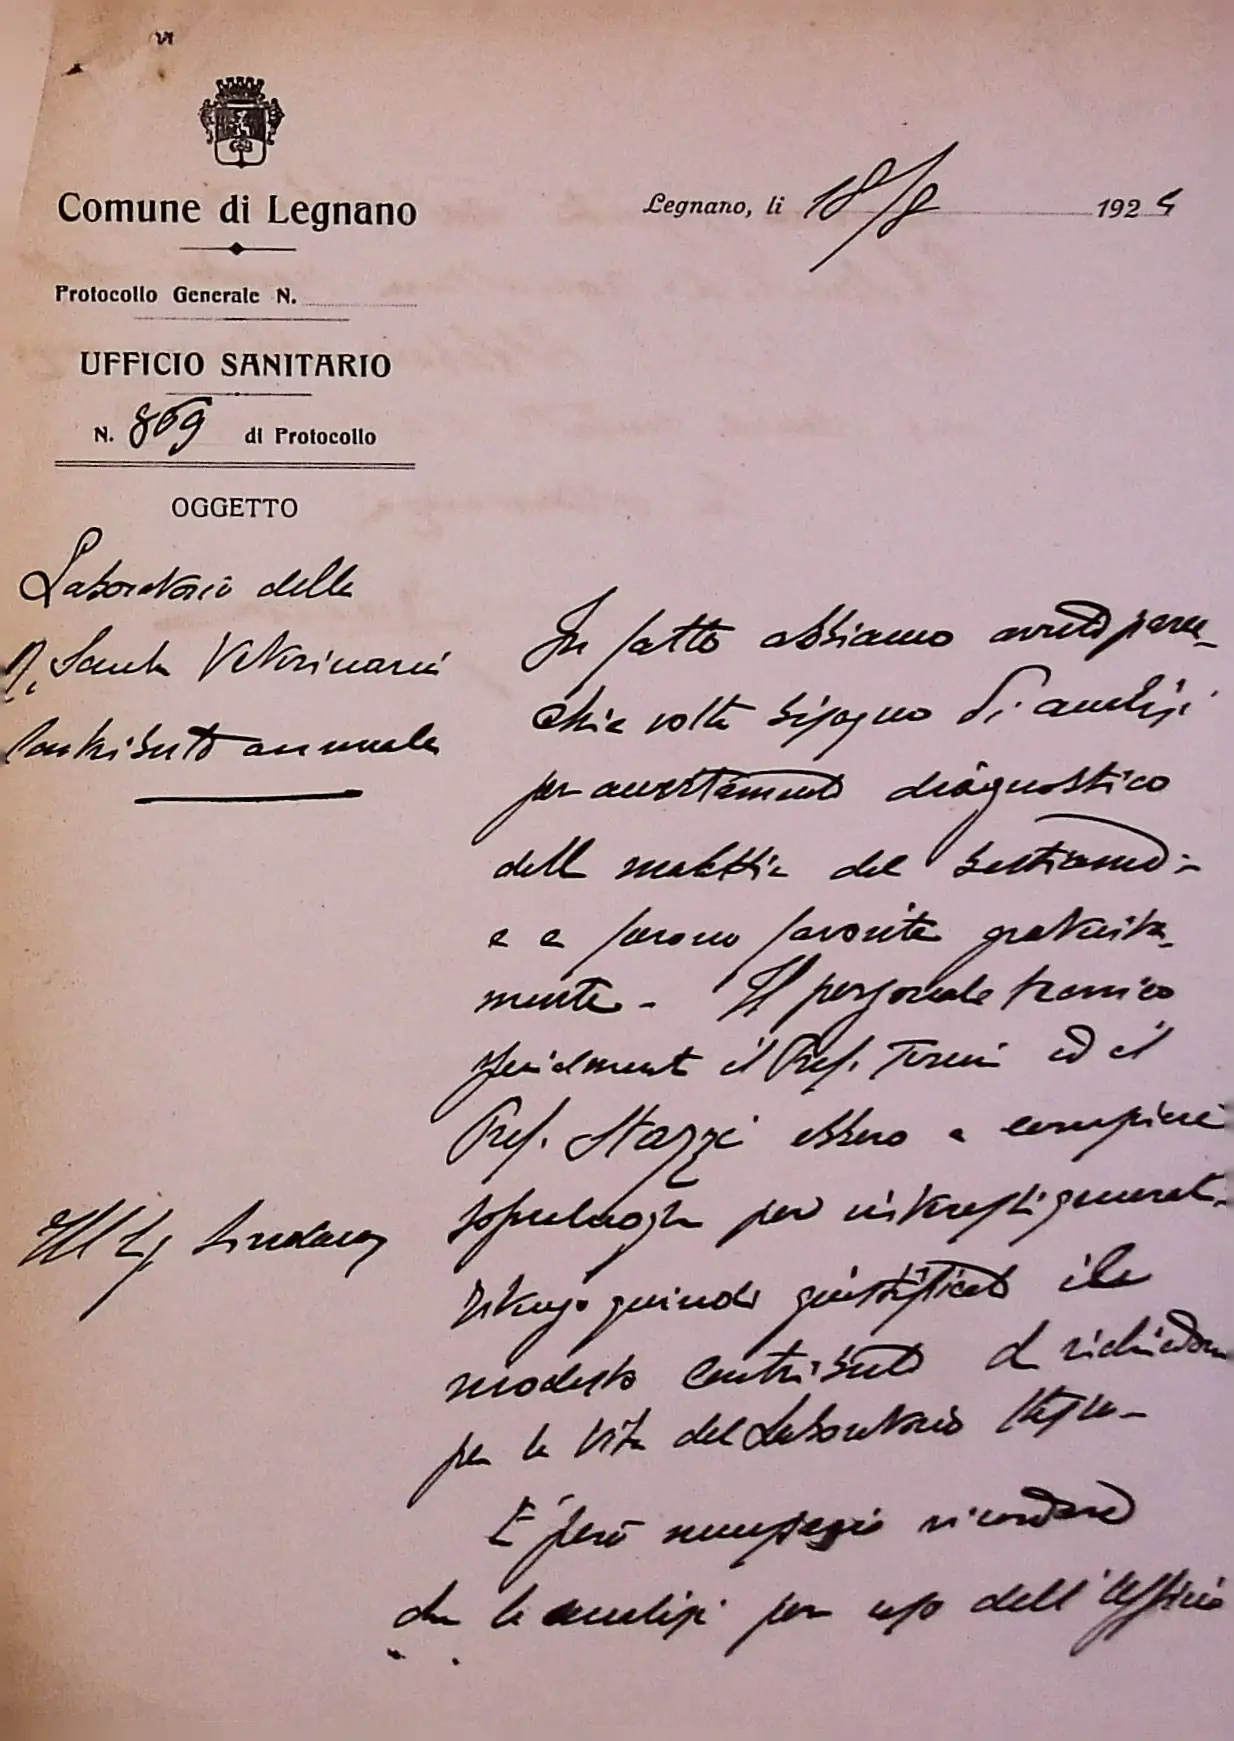 Comune di Legnano
Legnano, li 18/8 1924
Protocollo Generale N.
UFFICIO SANITARIO
N. 869 di Protocollo
OGGETTO
Laboratorio della
R. Scuola Veterinaria
Contributo annuale
Ill Sig Sindaco
In fatto abbiamo avuto parec-
chie volte bisogno di analisi
per accertamento diagnostico
delle malattie del bestiame
e furono favorite gratuita-
mente - Il personale tecnico
specialmente il Prof. Terni ed il
Prof. Stazzi ebbero a compiere
sopraluoghi per interessi generali.
Ritengo quindi giustificato il
modesto contributo richiesto
per la vita del Laboratorio stesso -
È però necessario ricordare
che le analisi per uso dell'Ufficio